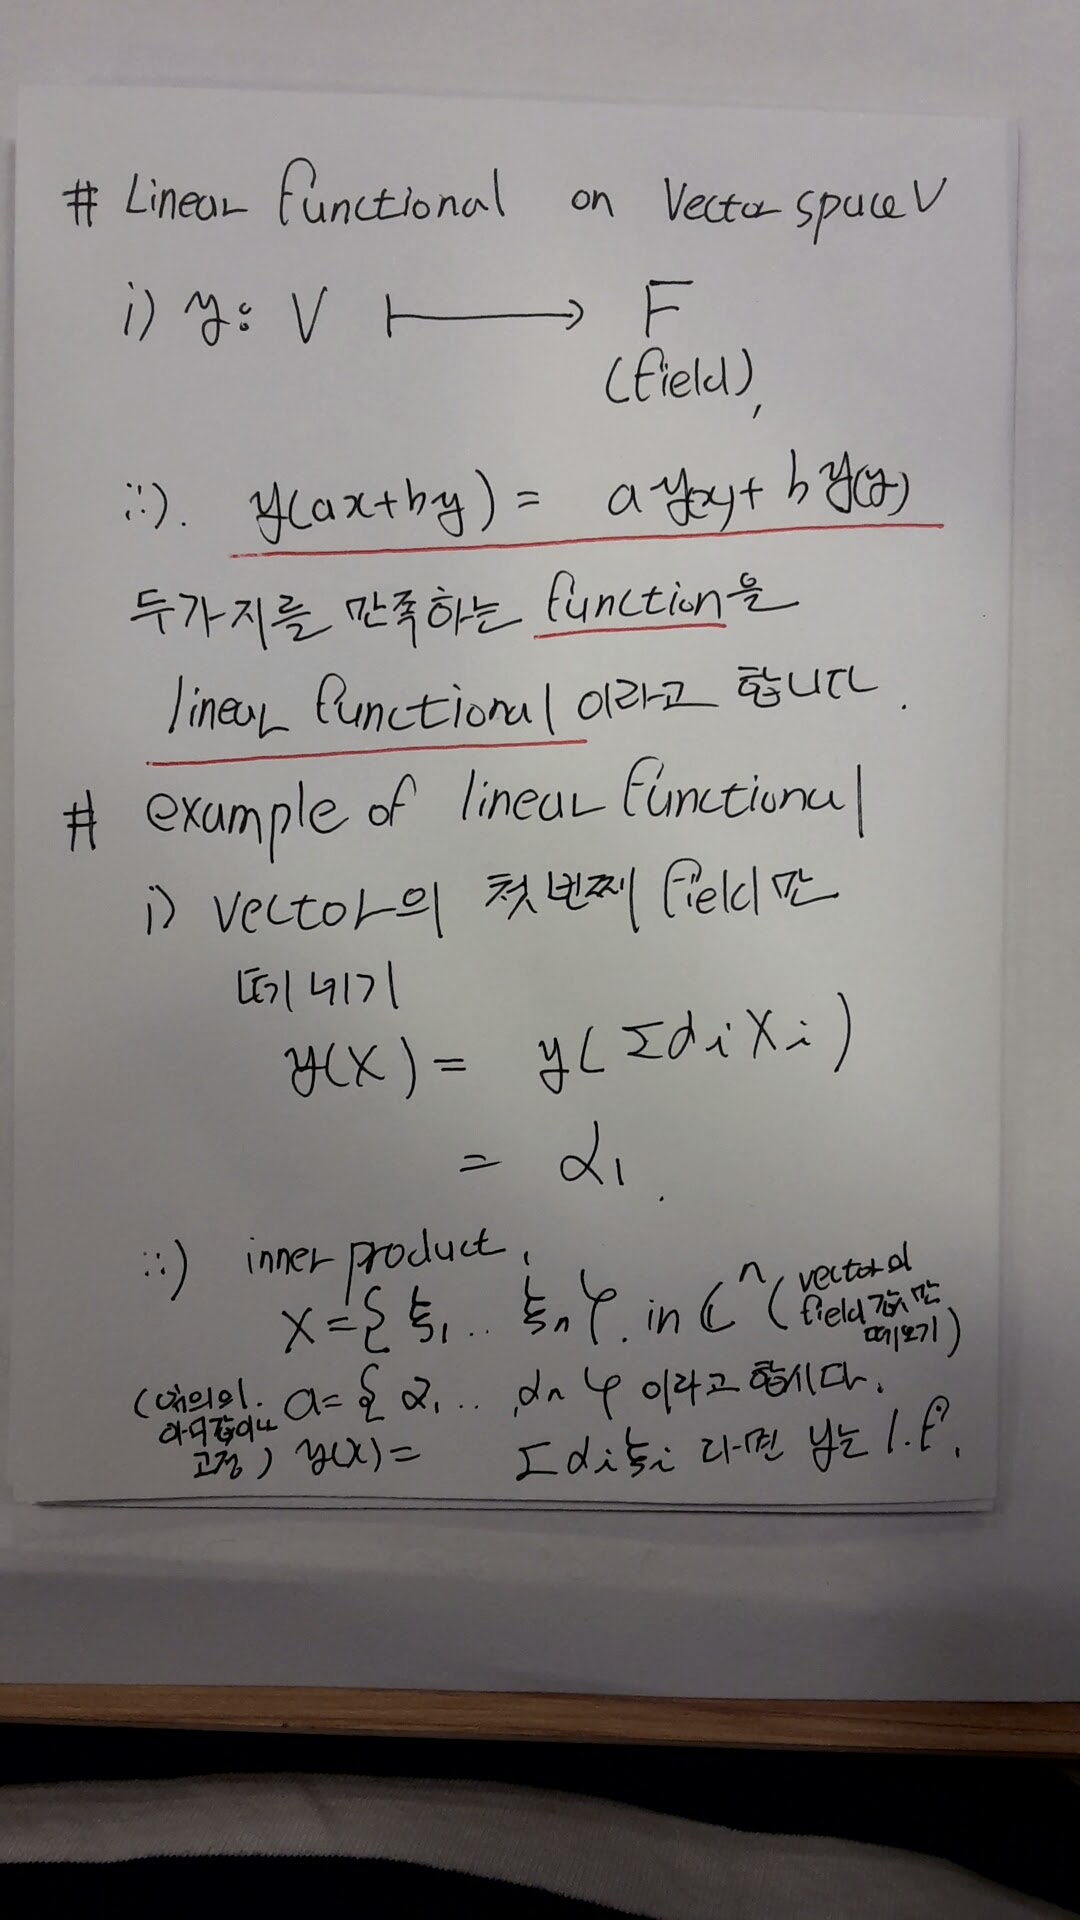 # Linear functional on Vector space V
i) y: V ⟼ F
(field),
ii). y(ax+by) = a y(x) + b y(y)
두가지를 만족하는 function을
linear functional 이라고 합니다.
# example of linear functional
i) vector의 첫번째 field만
떼내기
y(x) = y(Σαixi)
= α1.
ii) inner product,
x={ξ1.. ξn}. in ℂⁿ (vector의
field값만
떼오기)
(임의의. a={α1.. ,αn} 이라고 합시다.
아무값이나
고정) y(x)= Σαiξi 라면 y는 l.f.